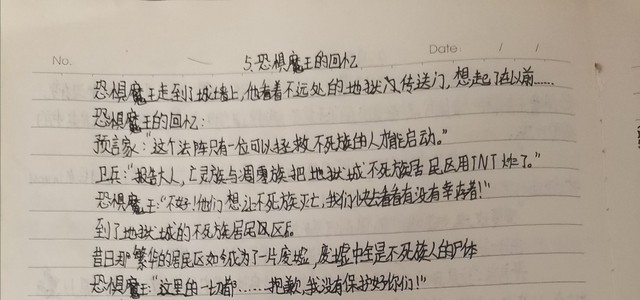 No.
Date: / /
5.恐惧魔王的回忆
恐惧魔王走到了城墙上,他看着不远处的地狱门传送门,想起了在以前……
恐惧魔王的回忆:
预言家:“这个法阵只有一位可以拯救不死族的人才能启动。”
卫兵:“报告大人,亡灵族与凋零族把地狱城不死族居民区用TNT炸了。”
恐惧魔王:“不好!他们想让不死族灭亡,我们快去看看有没有幸存者!”
到了地狱城的不死族居民区后
昔日那繁华的居民区如今成为了一片废墟,废墟中全是不死族人的尸体
恐惧魔王:“这里的一切都……抱歉,我没有保护好你们!”